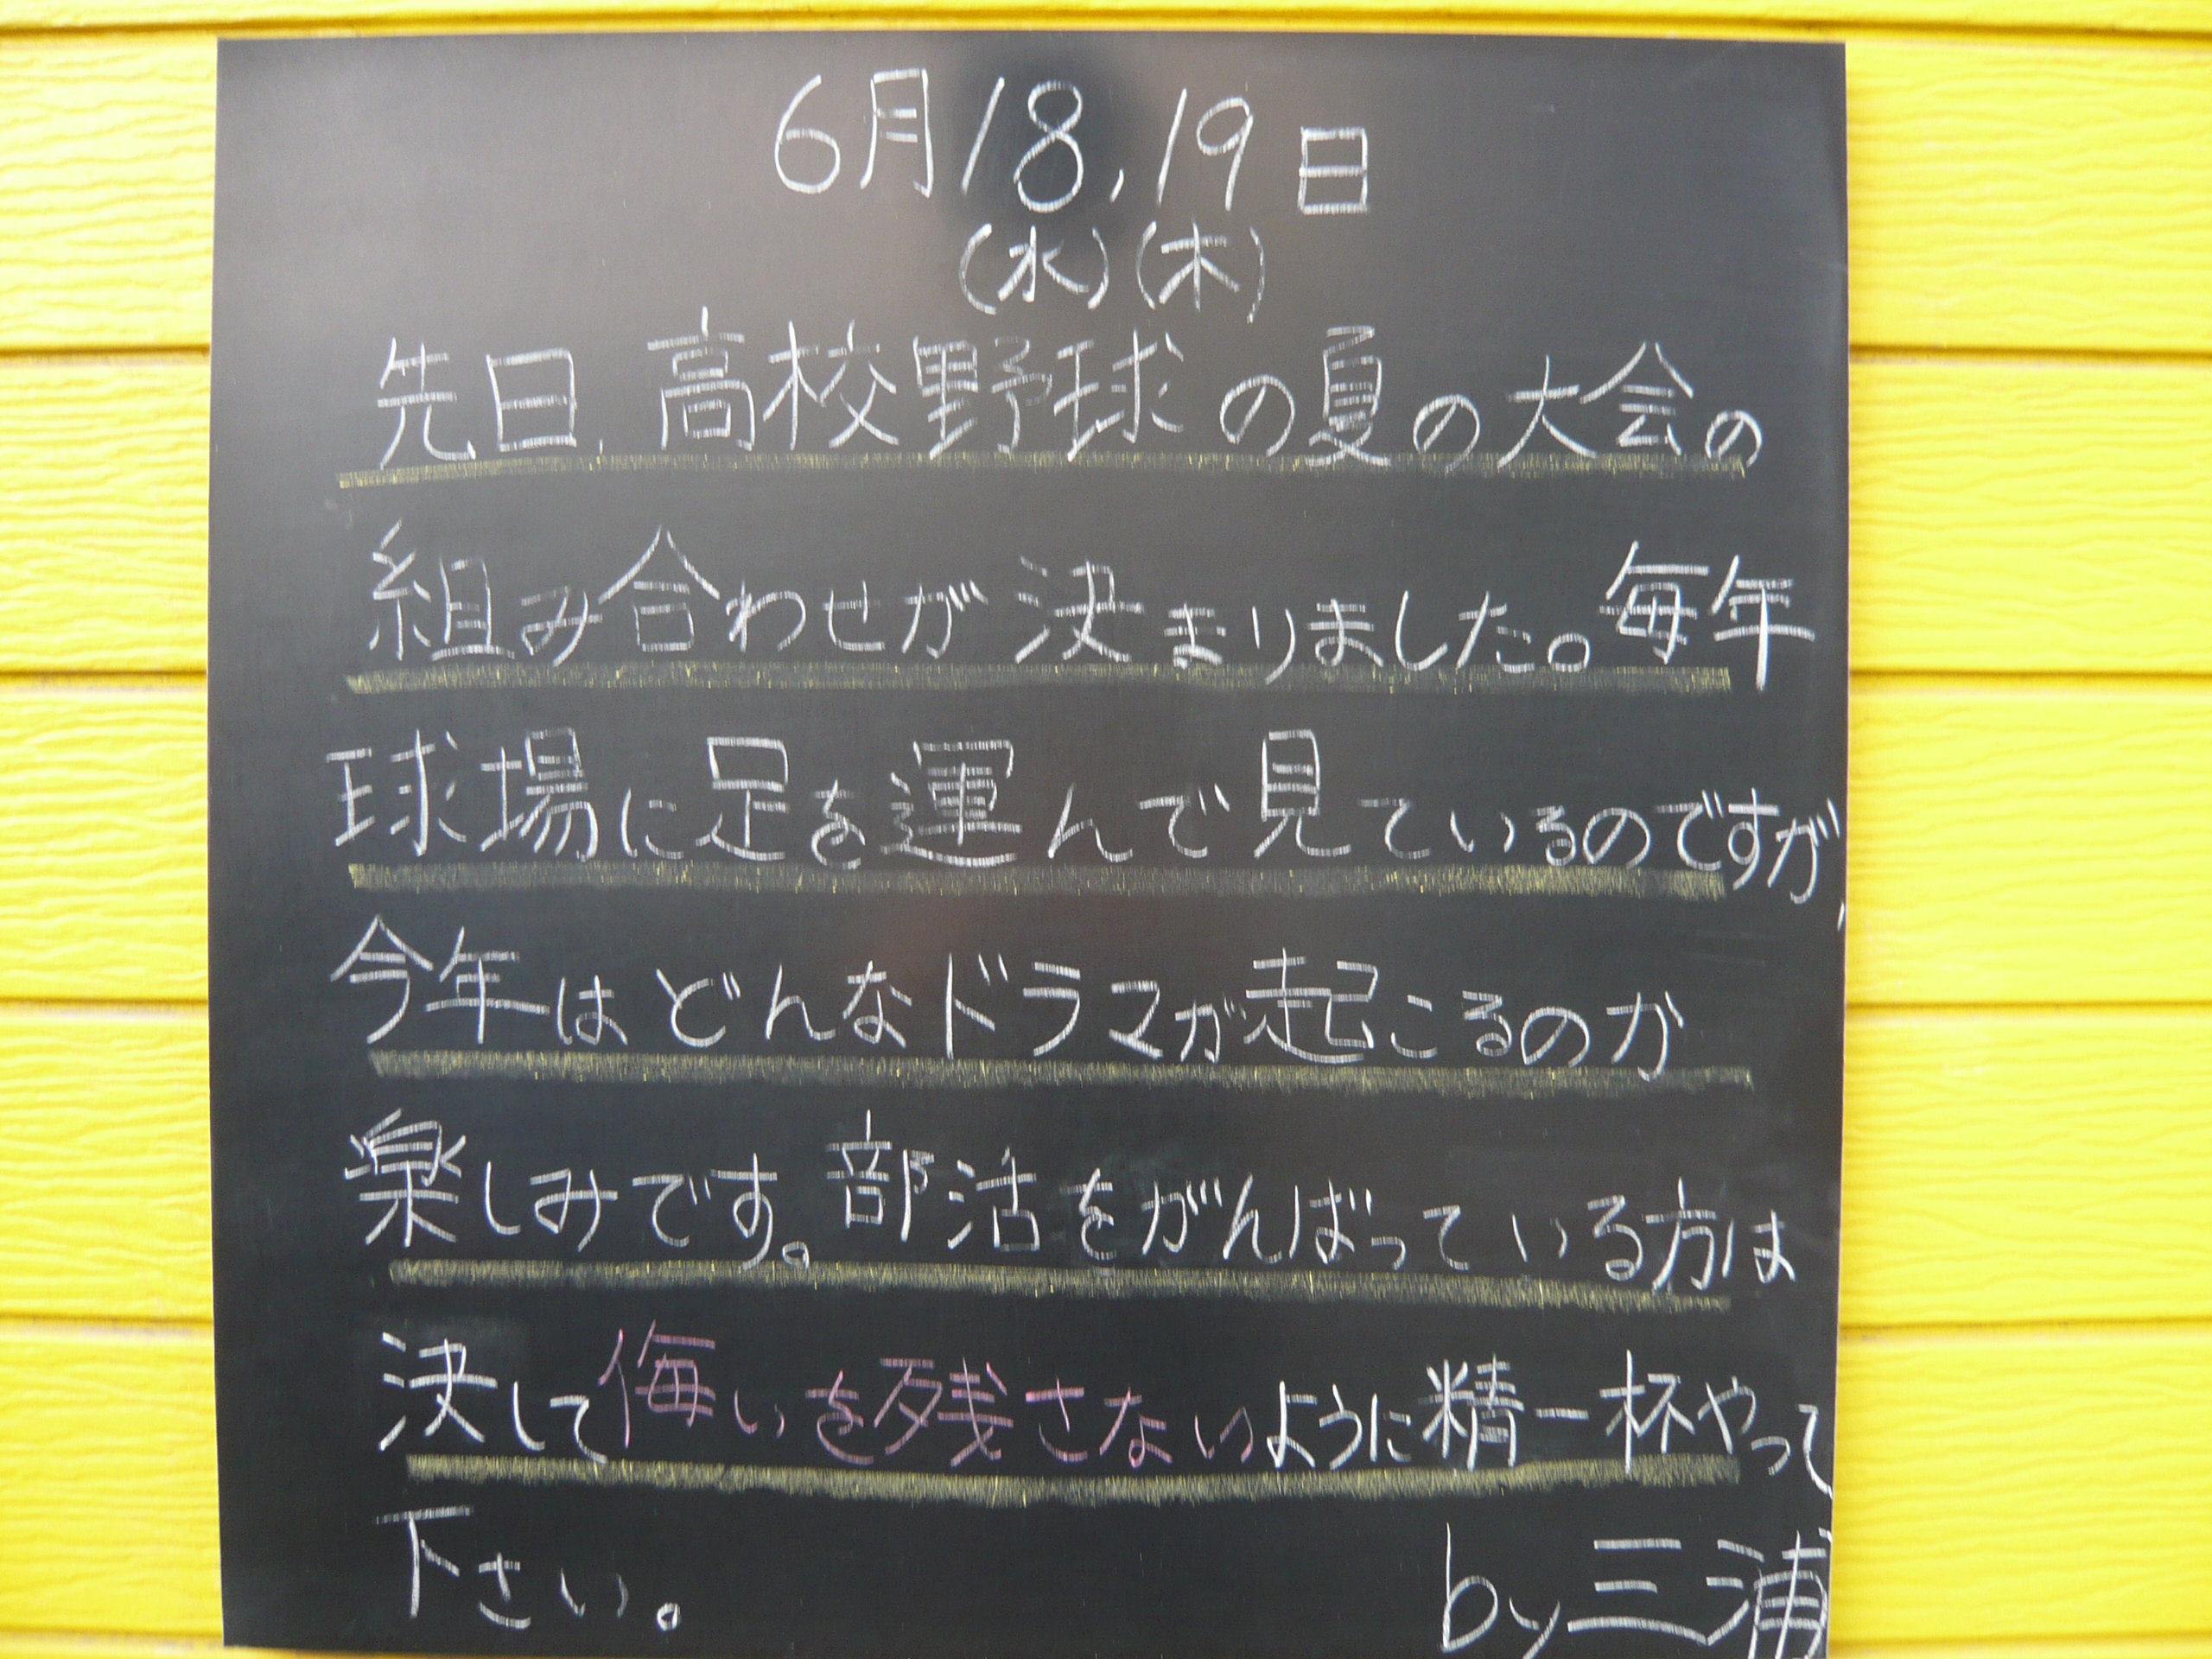 6月18,19日
(水)(木)
先日,高校野球の夏の大会の
組み合わせが決まりました。毎年
球場に足を運んで見ているのですが,
今年はどんなドラマが起こるのか
楽しみです。部活をがんばっている方は
決して侮いを残さないように精一杯やって
下さい。
by三浦